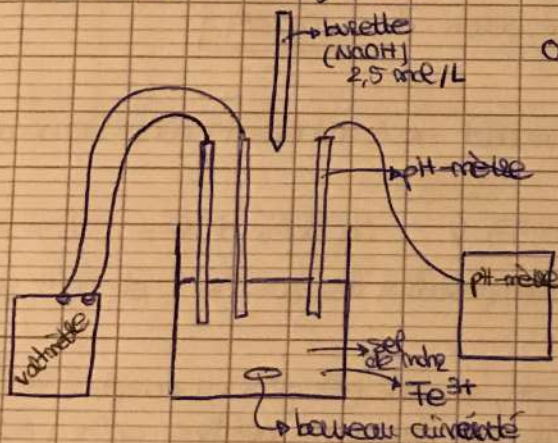 burette
(NaOH)
2,5 mol/L
pH-mètre
pH-mètre
voltmètre
sel
de Mohr
Fe³⁺
barreau aimanté